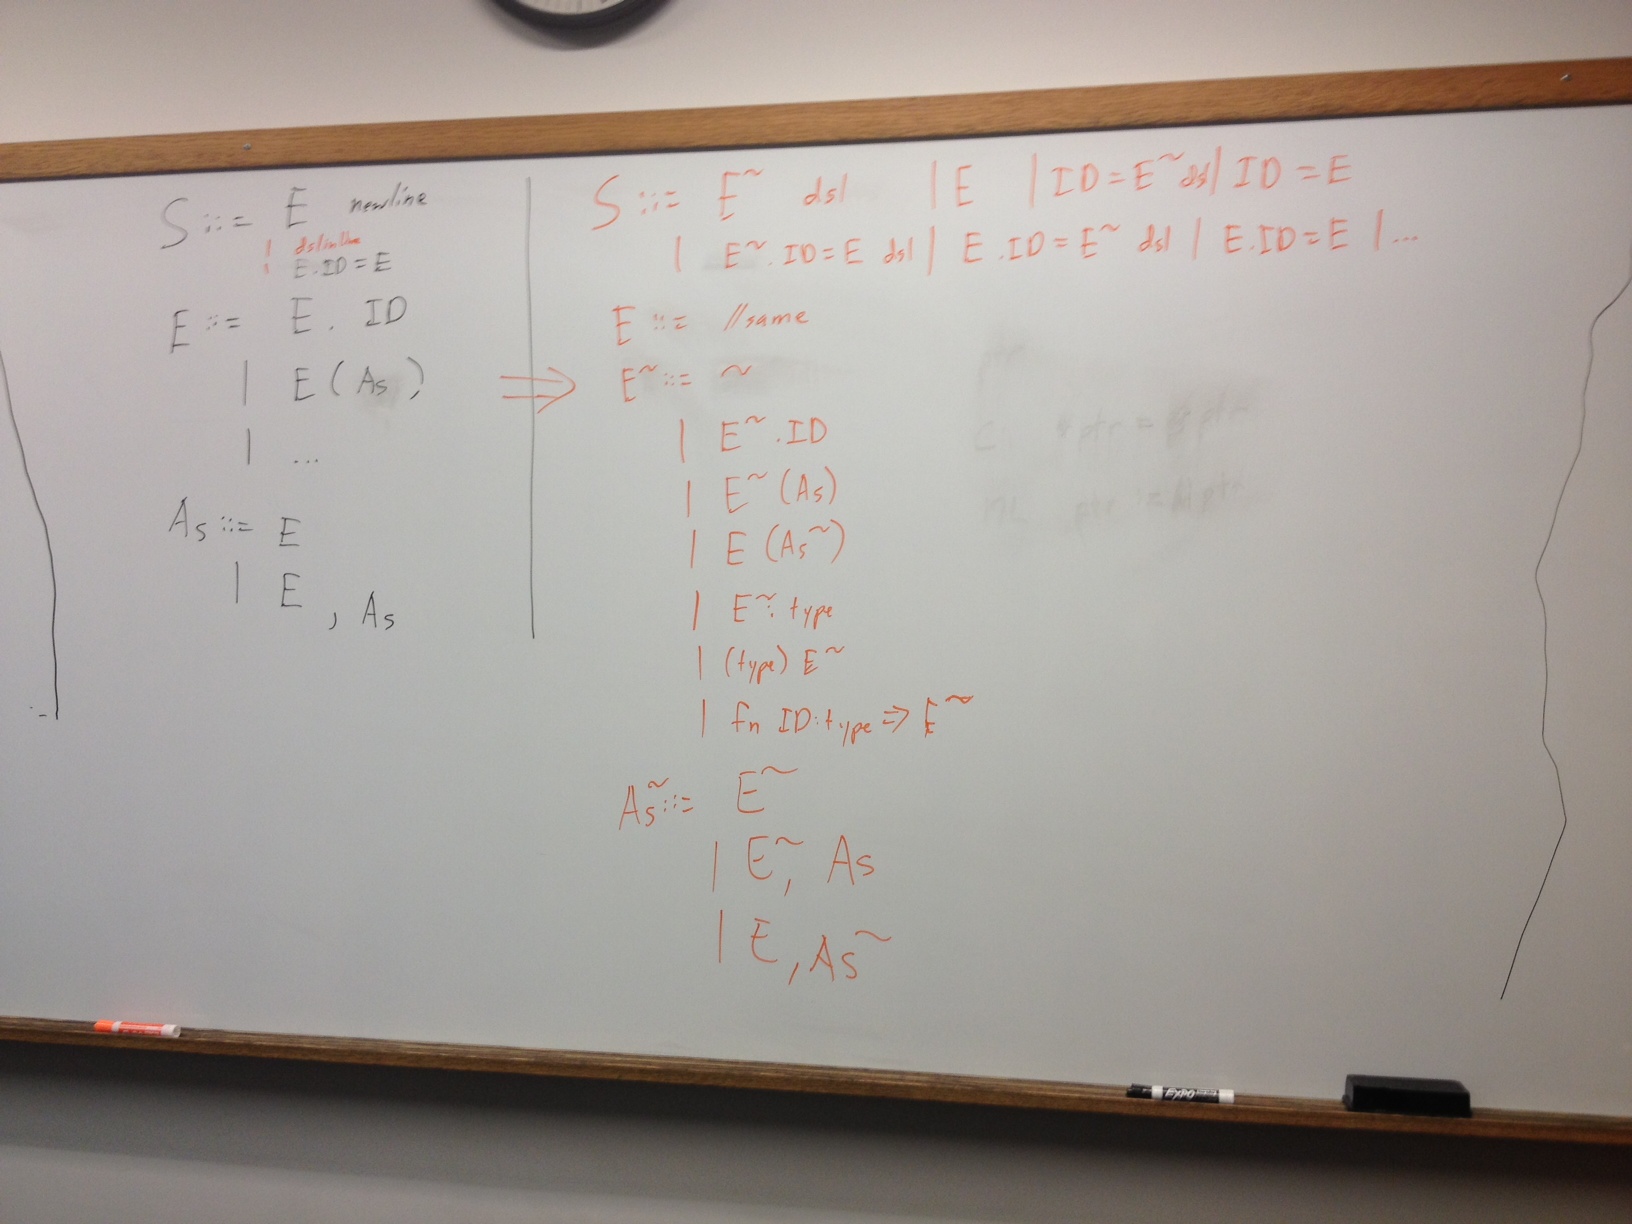 S ::= E newline
|
| E.ID = E
E ::= E . ID
| E ( As )
| ...
As ::= E
| E , As
⇒
S ::= E~ dsl | E | ID = E~ dsl | ID = E
| E~ . ID = E dsl | E . ID = E~ dsl | E.ID = E | ...
E ::= //same
E~ ::= ~
| E~ . ID
| E~ (As)
| E (As~)
| E~ : type
| (type) E~
| fn ID : type ⇒ E~
As~ ::= E~
| E~, As
| E, As~
EXPO